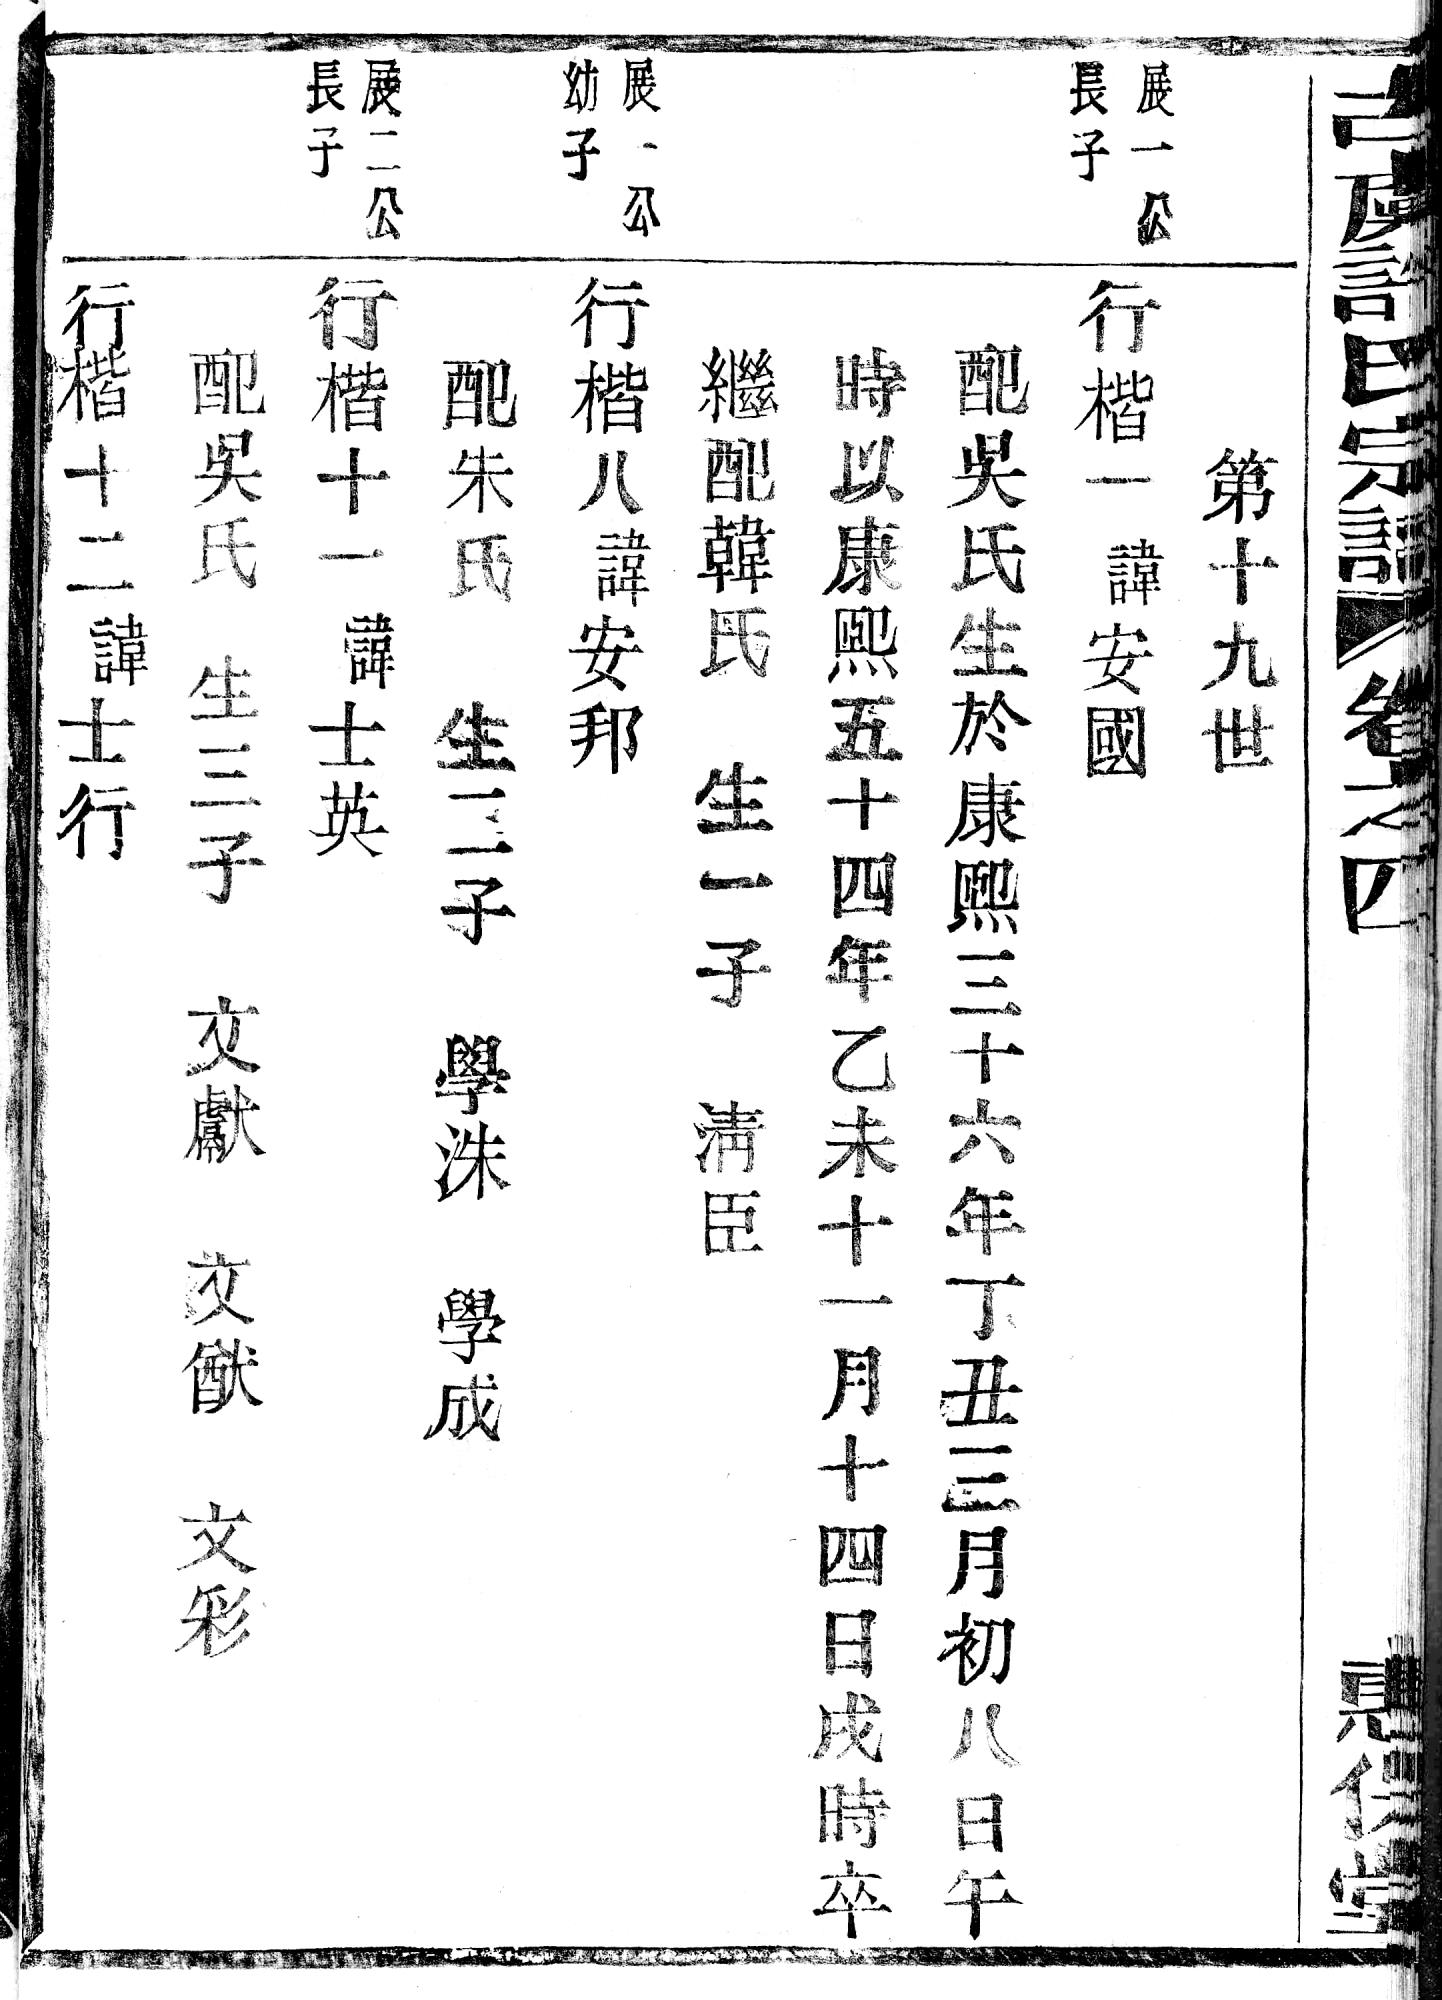 古虞許氏宗譜 卷之四
第十九世
展一公
長子
行楷一 諱安國
配吳氏生於康熙三十六年丁丑三月初八日午
時以康熙五十四年乙未十一月十四日戌時卒
繼配韓氏 生一子 清臣
展一公
幼子
行楷八 諱安邦
配朱氏 生二子 學洙 學成
展二公
長子
行楷十一 諱士英
配吳氏 生三子 文獻 文猷 文彩
行楷十二 諱士行